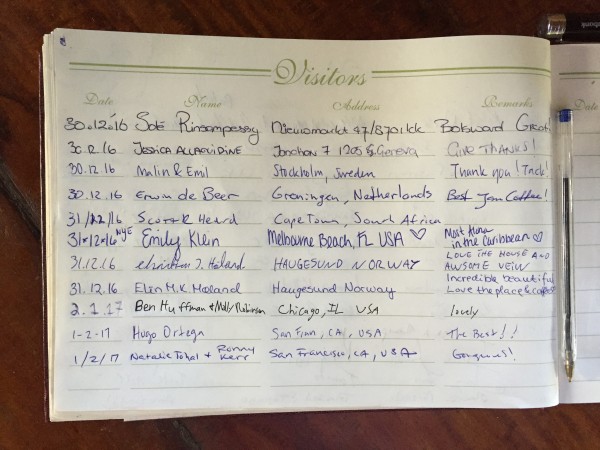 Visitors
Date Name Address Remarks Date
30.12.16 Nieuwmarkt 47/8701kk
30.12.16 Jessica 7 1205 Geneva GIVE THANKS!
30.12.16 Malin & Emil Stockholm, Sweden Thank you! Tack!
30.12.16 Erwin de Beer Groningen, Netherlands Best Jam Coffee!
31/12/16 Scott R Heard Cape Town, South Africa
31.12.16 NYE Emily Klein Melbourne Beach, FL USA ♡ Most
in the Caribbean ♡
31.12.16 HAUGESUND NORWAY LOVE THE HOUSE AND
AWSOME VEIW
31.12.16 Elin M.K. Haugesund Norway Incredible beautiful
Love the place &
2.1.17 Ben Huffman & Molly Robinson Chicago, IL USA lovely
1-2-17 Hugo Ortega San Fran, CA, USA The Best!!
1/2/17 Natalie & Ronny Kerr San Francisco, CA, USA Gorgeous!